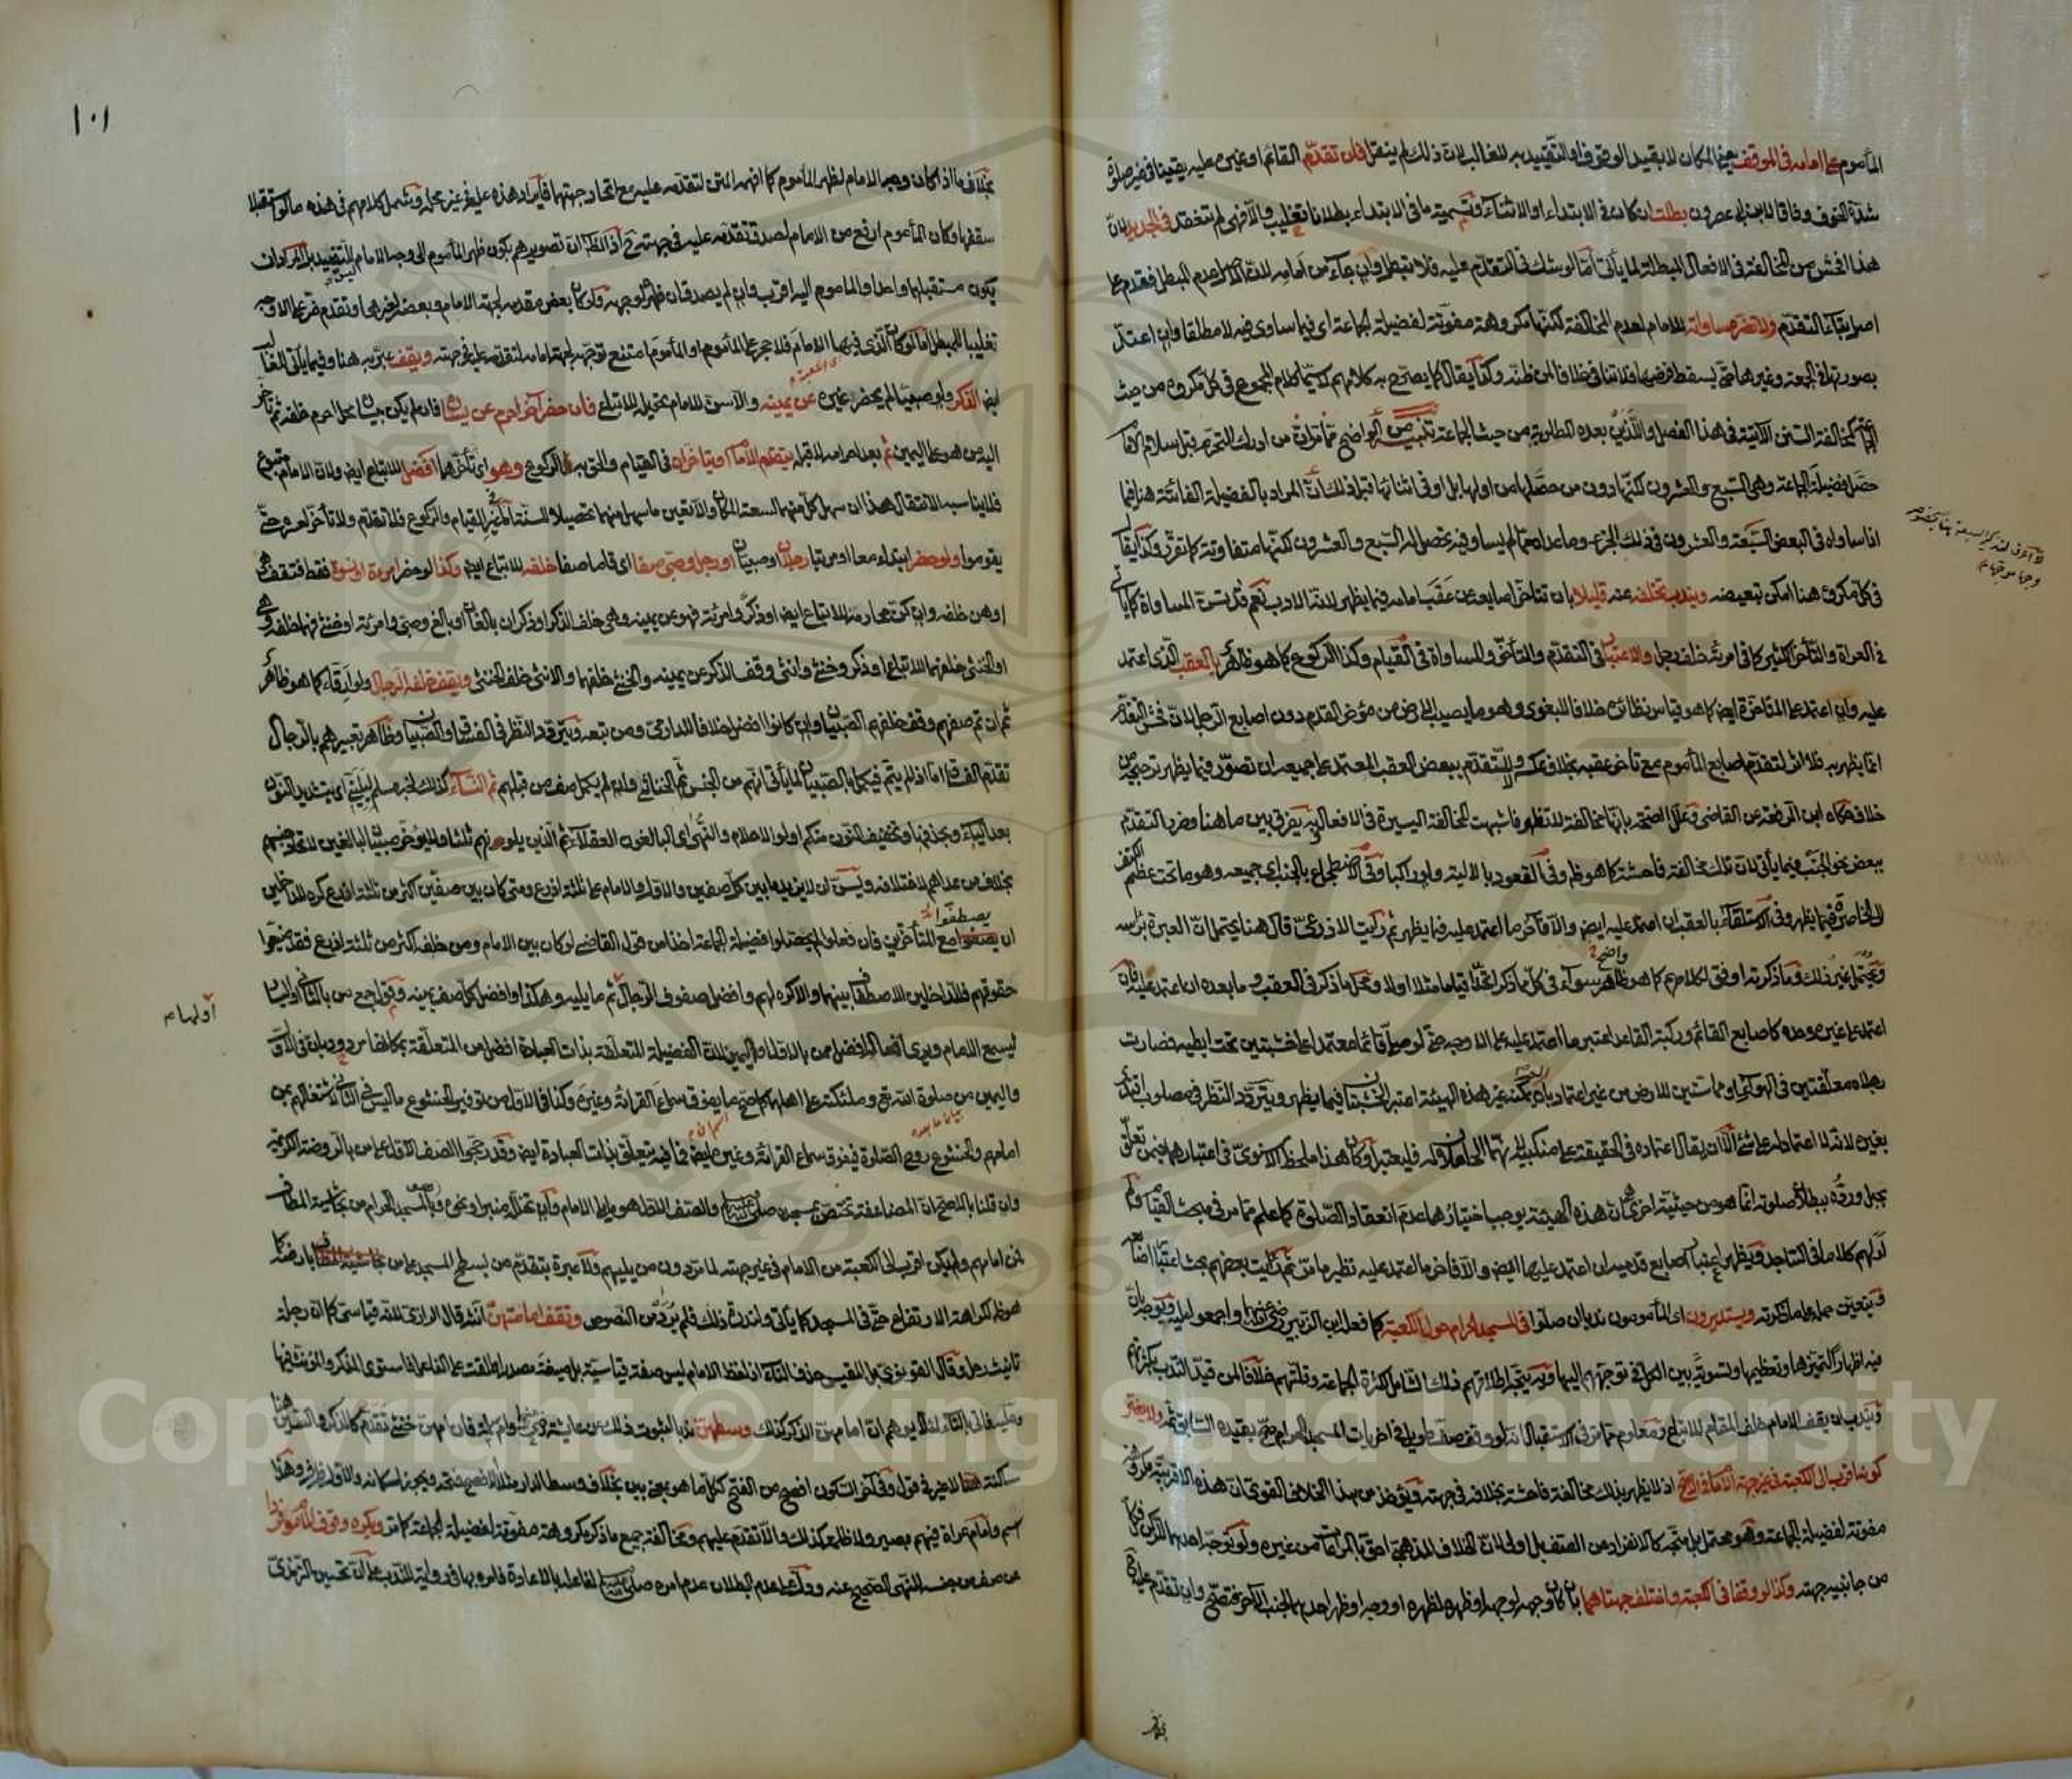 المأموم على امامه في الموقف يعني المكان لا بقيد الوقوف او التقييد به للغالب لان ذلك لم ينقل فان تقدم القائم او غيره عليه يقينا في غير صلوة
شدة الخوف وفاقا لابن ابي عصرون بطلت ان كان في الاثناء او الابتداء وتسمية ما في الابتداء بطلانا تغليب والا فهي لم تنعقد في الجديد لان
هذا افحش من المخالفة في الافعال المبطلة لما يأتي اما لو شك في التقدم عليه فلا تبطل وان جاء من امامه لان الاصل عدم المبطل فقدم على
اصل بقاء التقدم ولا تضر مساواته للامام لعدم المخالفة لكنها مكروهة مفوتة لفضيلة الجماعة اي فيما ساوى فيه لا مطلقا وان اعتد
بصورتها في الجمعة وغيرها حتى يسقط فرضها فلا تنافي خلافا لمن ظنه وكذا يقال كما يصرح به كلامهم لا سيما كلام المجموع في كل مكروه من حيث
الجماعة كمخالفة السنن الآتية في هذا الفصل والذي بعده المطلوبة من حيث الجماعة تنبيه من الواضح مما مر ان من ادرك التحرم قبل سلام الامام
حصل فضيلة الجماعة وهي السبع والعشرون لكنها دون من حصلها من اولها بل او في اثنائها قبل ذلك ان المراد بالفضيلة الفائتة هنا فيما
اذا ساواه في البعض السبعة والعشرون في ذلك الجزء وما عداه مما لم يساو فيه تحصل له السبع والعشرون لكنها متفاوتة كما تقرر وكذا يقال
في كل مكروه هنا امكن تبعيضه ويندب تخلفه عنه قليلا بان تتأخر اصابعه عن عقب امامه فيما يظهر لانه الادب نعم قد تسن المساواة كما يأتي
في العراة والتأخر الكثير كما في امرأة خلف رجل والاعتبار في التقدم والتأخر والمساواة في القيام وكذا الركوع كما هو ظاهر بالعقب الذي اعتمد
عليه وان اعتمد على المتأخرة ايضا كما هو قياس نظائره خلافا للبغوي وهو ما يصيب الارض من مؤخر القدم دون اصابع الرجل لان فحش التقدم
انما يظهر به فلا اثر لتقدم اصابع المأموم مع تأخر عقبه بخلاف عكسه وللتقدم ببعض العقب المعتمد على جميعه ان تصور فيما يظهر ترجيحه من
خلاف حكاه ابن الرفعة عن القاضي وعلل الصحة بانها مخالفة لا تظهر فاشبهت المخالفة اليسيرة في الافعال وبه يفرق بين ما هنا وضرر التقدم
ببعض نحو الجنب فيما يأتي لان تلك مخالفة فاحشة كما هو ظاهر وفي القعود بالالية ولو راكبا وفي الاضطجاع بالجنب اي جميعه وهو ما تحت عظم الكتف
الى الخاصرة فيما يظهر وفي الاستلقاء بالعقب ان اعتمد عليه ايضا والا فآخر ما اعتمد عليه فيما يظهر ثم رأيت الاذرعي قال هنا يحتمل ان العبرة برأسه
ويحتمل غير ذلك وما ذكرته اوفق لكلامهم كما هو واضح سواء في كل ما ذكر اتحدا قياما مثلا او لا ومحل ما ذكر في العقب وما بعده ان اعتمد عليه فان
اعتمد على غيره وحده كاصابع القائم وركبة القاعد اعتبر ما اعتمد عليه على الاوجه حتى لو صلى قائما معتمدا على خشبتين تحت ابطيه فصارت
رجلاه معلقتين في الهواء او مماستين للارض من غير اعتماد بان لم يمكنه غير هذه الهيئة اعتبر الخشبتان فيما يظهر ويتردد النظر في مصلوب اقتدى
بغيره لانه لا اعتماد له على شيء الا ان يقال اعتماده في الحقيقة على منكبيه لانهما الحاملان له فليعتبرا وكان هذا ملحظ الاسنوي في اعتبارهما فيمن تعلق
بحبل ورده ببطلان صلوته انما هو من حيثية اخرى هي ان هذه الهيئة يوجب اختيارها عدم انعقاد الصلوة كما علم مما مر في مبحث القيام ولم
ار لهم كلاما في الساجد ويظهر اعتبار اصابع قدميه ان اعتمد عليها ايضا والا فآخر ما اعتمد عليه نظير ما مر ثم رأيت بعضهم بحث اعتبار اصابعه
ويتعين حمله على ما ذكرته ويستديرون اي المأمومون ندبا ان صلوا في المسجد الحرام حول الكعبة كما فعله ابن الزبير رضي الله عنهما واجمعوا عليه ويوجه بان
فيه اظهارا لتميزها وتعظيمها وتسوية بين الكل في توجههم اليها وبه يتجه اطلاقهم ذلك الشامل لكثرة الجماعة وقلتهم خلافا لمن قيد الندب بكثرتهم
ويندب ان يقف الامام خلف المقام للاتباع ومعلوم مما مر في الاستقبال انه لو وقف صف طويل في اخريات المسجد الحرام صح بقيده السابق ثم ولا يضر
كونه اقرب الى الكعبة في غير جهة الامام في الاصح اذ لا يظهر بذلك مخالفة فاحشة بخلافه في جهته ويؤخذ من هذا الخلاف القوي ان هذه الاقربية مكروهة
مفوتة لفضيلة الجماعة وهو محتمل بل متجه كالانفراد عن الصف بل اولى لان الخلاف المذهبي احق بالمراعاة من غيره ولو توجه احدهما الركن فكل
من جانبيه جهته وكذا لو وقفا في الكعبة واختلف جهتاهما بان كان وجهه لوجهه او ظهره لظهره او وجه او ظهر احدهما لجنب الآخر فتصح وان تقدم عليه
بخلاف
لا اعرف لذكر السبعة هنا
١٠١
بخلاف ما اذا كان وجه الامام لظهر المأموم كما افهمه المتن لتقدمه عليه مع اتحاد جهتهما فايراد هذه عليه في غير محله وشمل كلامهم في هذه ما لو استقبلا
سقفها وكان المأموم ارفع من الامام لصدق تقدمه عليه في جهته اذ الظاهر ان تصويرهم بكون ظهر المأموم الى وجه الامام ليس للتقييد بل المدار ان
يكون مستقبلهما واحدا والمأموم اليه اقرب وان لم يصدق ان ظهره لوجهه ولو كان بعض مقدمه لجهة الامام وبعضه لغيرها وتقدم ضر على الاوجه
تغليبا للمبطل اما لو كان الذي فيها الامام فلا حجر على المأموم او المأموم امتنع توجهه لجهة امامه لتقدمه عليه في جهته ويقف عبر به هنا وفيما يأتي للغالب
ايضا الذكر ولو صبيا لم يحضر غيره عن يمينه والا سن للامام تحويله للاتباع فان حضر آخر احرم عن يساره فان لم يكن بيساره محل احرم خلفه ثم تأخر
اليه من هو على اليمين ثم بعد احرامه لا قبله يتقدم الامام او يتأخران في القيام والحق به الركوع وهو اي تأخرهما افضل للاتباع ايضا ولان الامام متبوع
فلا يناسبه الانتقال هذا ان سهل كل منهما لسعة المكان والا تعين ما سهل منهما تحصيلا للسنة اما في غير القيام والركوع فلا تقدم ولا تأخر حتى
يقوموا ولو حضر ابتداء معا او مرتبا رجلان او صبيان او رجل وصبي صفا اي قاما صفا خلفه للاتباع ايضا وكذا لو حضر امرأة او نسوة فقط فتقف هي
او هن خلفه وان كن محارمه للاتباع ايضا او ذكر وامرأة فهو عن يمينه وهي خلف الذكر او ذكران بالغان او بالغ وصبي وامرأة او خنثى فهما خلفه وهي
او الخنثى خلفهما للاتباع او ذكر وخنثى وانثى وقف الذكر عن يمينه والخنثى خلفهما والانثى خلف الخنثى ويقف خلفه الرجال ولو ارقاء كما هو ظاهر
ثم ان تم صفهم وقف خلفهم الصبيان وان كانوا افضل خلافا للدارمي ومن تبعه ويتردد النظر في الفساق والصبيان وظاهر تعبيرهم بالرجال
تقدم الفساق اما اذا لم يتم فيكمل بالصبيان لما يأتي انهم من الجنس ثم الخناثى وان لم يكمل صف من قبلهم ثم النساء كذلك لخبر مسلم ليليني اي بتشديد النون
بعد الياء وبحذفها وتخفيف النون منكم اولوا الاحلام والنهى اي البالغون العقلاء ثم الذين يلونهم ثلثا ولا يؤخر صبيان لبالغين لاتحاد جنسهم
بخلاف من عداهم لاختلافه ويسن ان لا يزيد ما بين كل صفين والاول والامام على ثلثة اذرع ومتى كان بين صفين اكثر من ثلثة اذرع كره للداخلين
ان يصطفوا مع المتأخرين فان فعلوا لم يحصلوا فضيلة الجماعة اخذا من قول القاضي لو كان بين الامام ومن خلفه اكثر من ثلثة اذرع فقد ضيعوا
حقوقهم فللداخلين الاصطفاف بينهما والا كره لهم وافضل صفوف الرجال ثم ما يليه وهكذا وافضل كل صف يمينه وقول جمع من بالثاني او اليسار
اولها
ليسمع الامام ويرى افعاله افضل ممن بالاول او اليمين لان الفضيلة المتعلقة بذات العبادة افضل من المتعلقة بمكانها مردود بان في الاول
واليمين من صلوة الله تعالى وملئكته على اهلهما كما صح ما يفوق سماع القرائة وغيره وكذا في الاول من توفير الخشوع ما ليس في الثاني لاشتغالهم بمن
امامهم والخشوع روح الصلوة فيفوق سماع القرائة وغيره ايضا فما فيه يتعلق بذات العبادة ايضا وقد رجحوا الصف الاول على من بالروضة الكريمة
وان قلنا بالاصح ان المضاعفة تختص بمسجده صلى الله عليه وسلم والصف الاول هو ما يلي الامام وان تخلله منبر او نحوه وبالمسجد الحرام من بحاشية المطاف
لمن امامهم ولم يكن اقرب الى الكعبة من الامام في غير جهته لما مر دون من يليهم ولا عبرة بتقدم من بسطح المسجد على من بارضه كما
هو ظاهر لكراهة الارتفاع حتى في المسجد كما يأتي ولندرة ذلك فلم يرد من النصوص وتقف امامتهن انث قال الرازي لانه قياسي كما ان رجلة
تأنيث رجل وقال القونوي بل المقيس حذف التاء اذ لفظ الامام ليس صفة قياسية بل صيغة مصدر اطلقت على الفاعل فاستوى المذكر والمؤنث فيها
وعليه فاتى بالتاء لئلا يوهم ان امامهن الذكر كذلك وسطهن ندبا لثبوت ذلك من عايشة وام سلمة رضي الله عنهما فان امهن خنثى تقدم كالذكر والسين هنا
ساكنة لا غير في قول وفي آخر السكون افصح من الفتح ككل ما هو بمعنى بين بخلاف وسط الدار مثلا الافصح فتحه ويجوز اسكانه والاول ظرف وهذا
اسم وامام عراة فيهم بصير ولا ظلمة كذلك والا تقدم عليهم ومخالفة جميع ما ذكر مكروهة مفوتة لفضيلة الجماعة كما مر ويكره وقوف المأموم فردا
عن صف من جنسه للنهي الصحيح عنه ودل على عدم البطلان عدم امره صلى الله عليه وسلم لفاعله بالاعادة فامره بها في رواية للندب على ان تحسين الترمذي
Copyright © King Saud University
1957